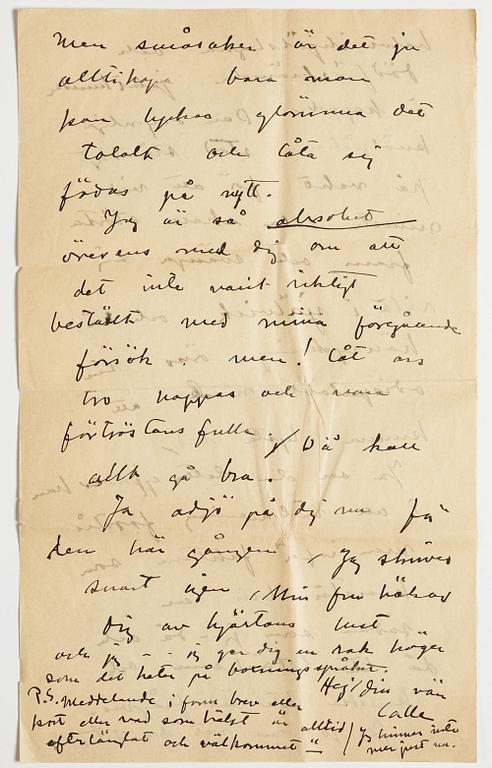 Men småsaker är det ju
alltihopa bara man
kan lyckas glömma det
totalt och låta sig
födas på nytt.
Jag är så absolut
överens med dig om att
det inte varit riktigt
beställt med mina föregående
försök. men! Låt oss
tro hoppas och vara
förtröstansfulla. Då skall
allt gå bra.
Ja adjö på dig nu för
den här gången, Jag skriver
snart igen, Min fru hälsar
dig av hjärtans lust
och jag - - jag ger dig en rak höger
som det heter på boxningsspråket.
Hej! din vän
Calle
P.S. Meddelande i form brev eller
kort eller vad som hälst är alltid
efterlängtat och välkommet
Jag hinner inte
mer just nu.